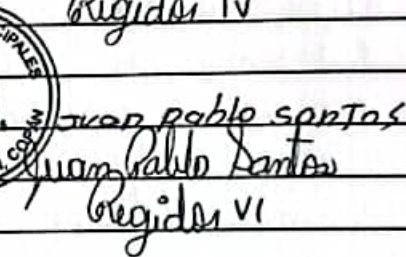 Regidor IV
CIPALES
Juan pablo santos
COPAN
Juan Pablo Santos
Regidor VI